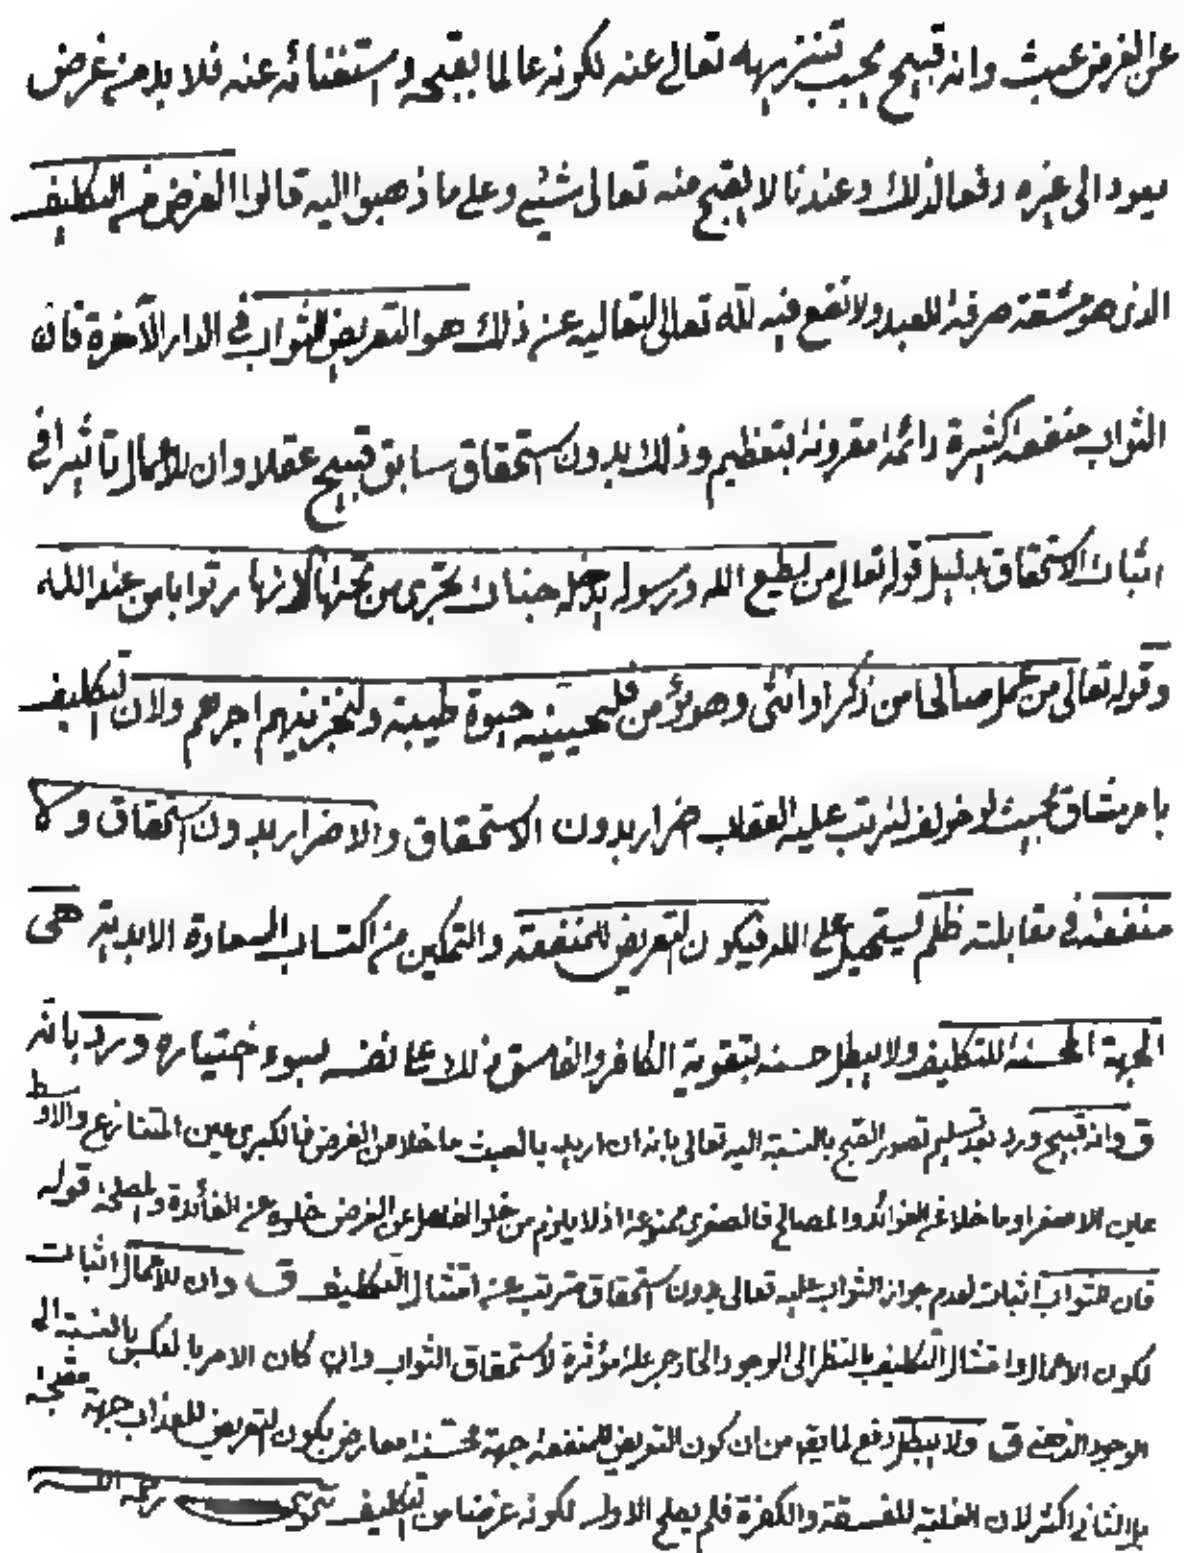 عن الغرض عبث وانه قبيح يجب تنزيهه تعالى عنه لكونه عالما بقبحه واستغنائه عنه فلا بد من غرض
يعود الى غيره دفعا لذلك وعندنا لا يقبح منه تعالى شيئ وعلى ما ذهبوا اليه قالوا الغرض من التكليف
الذى هو مشقة صرفة للعبد ولا نفع فيه لله تعالى لتعاليه عن ذلك هو التعريض للثواب في الدار الآخرة فان
الثواب منفعة كثيرة دائمة مقرونة بتعظيم وذلك بدون استحقاق سابق قبيح عقلا وان للاعمال تأثيرا في
اثبات الاستحقاق بدليل قوله تعالى من يطيع الله ورسوله يدخله جنات تجرى من تحتها الانهار ثوابا من عند الله
وقوله تعالى من عمل صالحا من ذكر او انثى وهو مؤمن فلنحيينه حيوة طيبة ولنجزينهم اجرهم ولان التكليف
بامر شاق بحيث لو خولف لترتب عليه العقاب اضرار بدون الاستحقاق والاضرار بدون استحقاق ولا
منفعة في مقابلته ظلم يستحيل على الله فيكون التعريض للمنفعة والتمكين من اكتساب السعادة الابدية هى
الجهة المحسنة للتكليف ولا يبطل حسنه بتفوية الكافر والفاسق ذلك على نفسه بسوء اختياره ورد بانه
ق وانه قبيح ورد بعد تسليم تصور القبح بالنسبة اليه تعالى بانه ان اريد بالعبث ما خلا من الغرض فالكبرى عين المتنازع والاوسط
عين الاصغر او ما خلا عن الفوائد والمصالح فالصغرى ممنوعة اذ لا يلزم من خلو الفعل عن الغرض خلوه عن الفائدة والمصلحة قوله
فان الثواب اثبات لعدم جواز الثواب عليه تعالى بدون استحقاق مترتب عن امتثال التكليف ق وان للاعمال اثبات
لكون الاعمال وامتثال التكليف بالنظر الى الوجود الخارجى علة مؤثرة لاستحقاق الثواب وان كان الامر بالعكس بالنسبة الى
الوجود الذهنى ق ولا يبطل دفع لما يقم من ان كون التعريض للمنفعة جهة محسنة معارض بكون التعريض للعذاب جهة مقبحة
بل الثانى اكثر لان الغلبة للفسقة والكفرة فلم يصلح الاول لكونه غرضا من التكليف رحمه الله